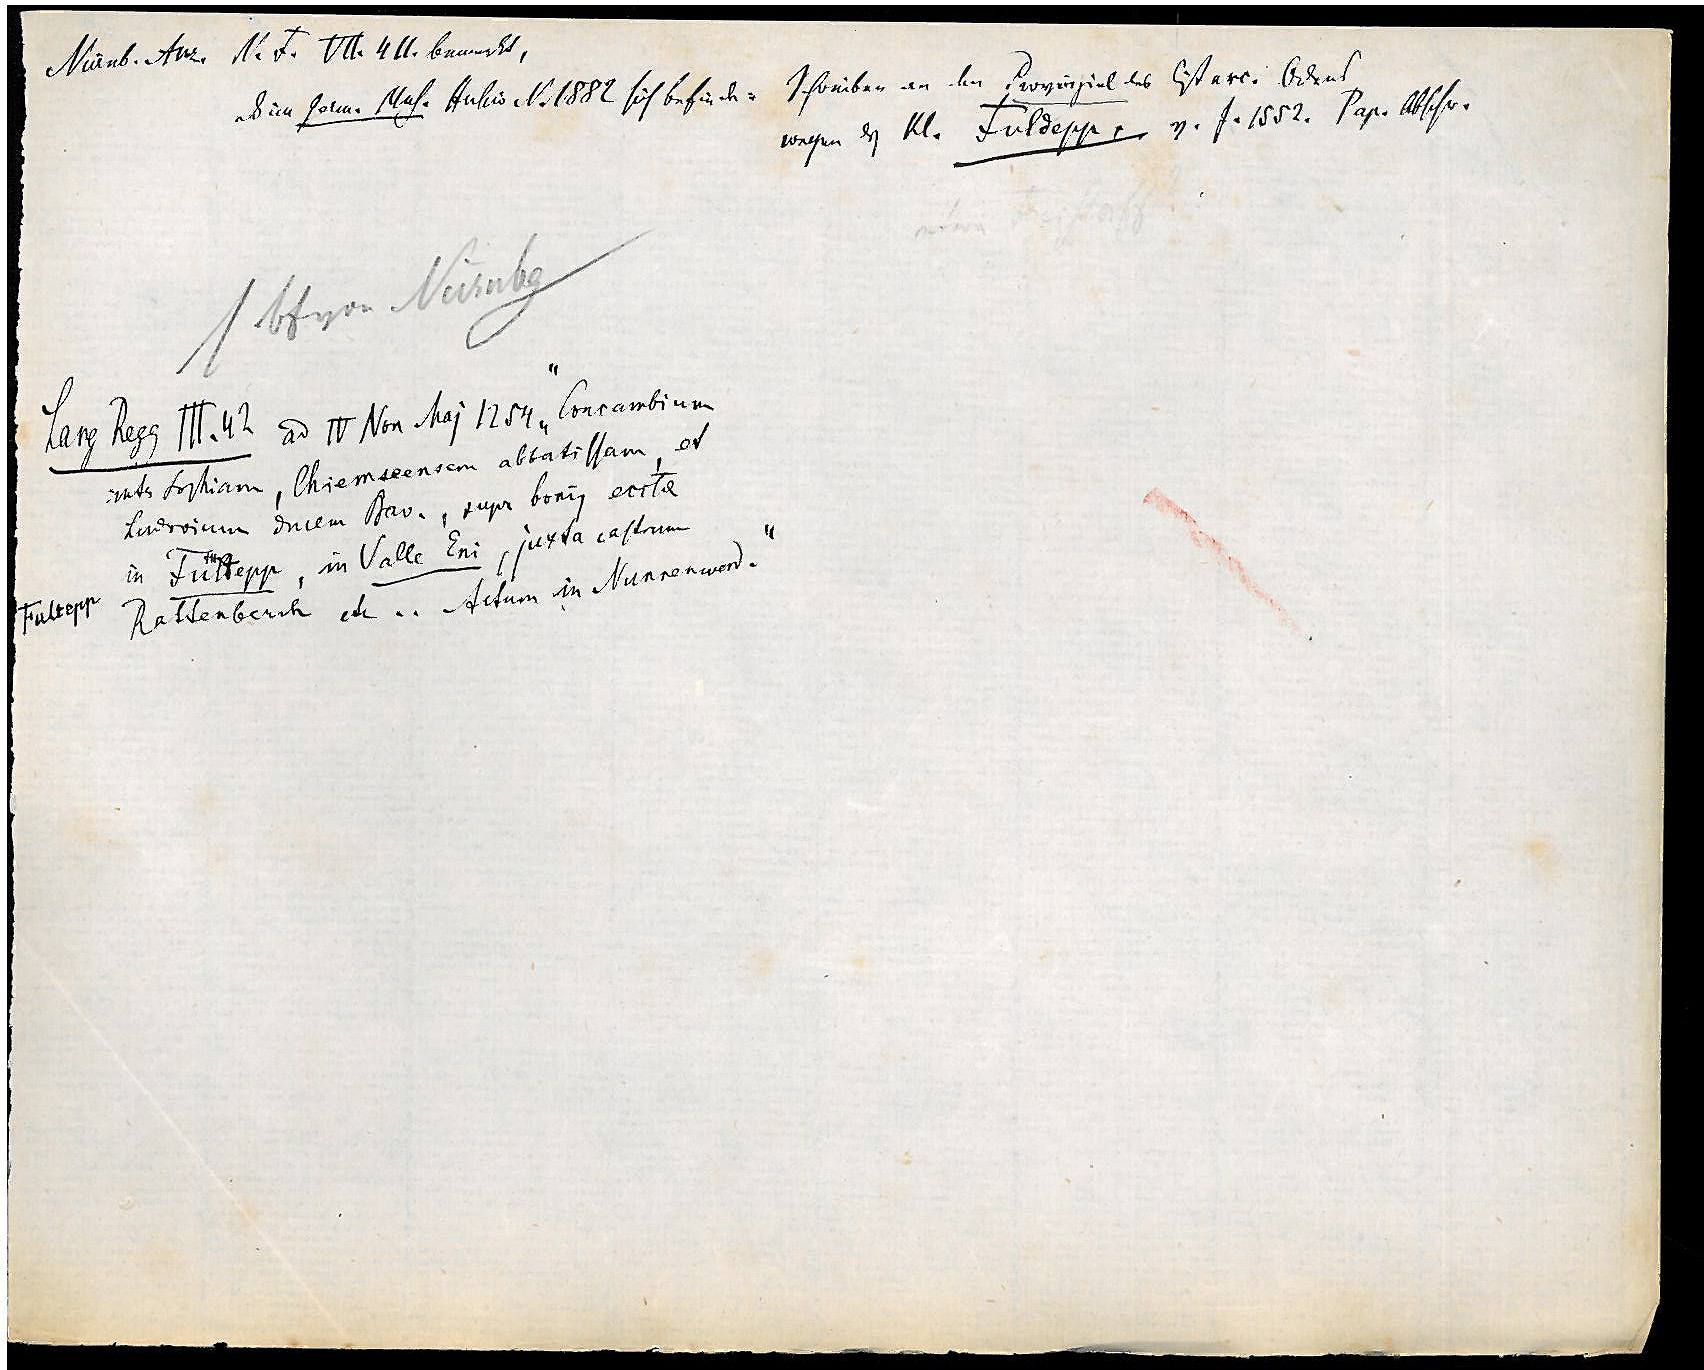 Nürnb. Anz. N. F. VII. 411. bemerkt,
d im germ. Mus. Archiv N. 1882 sich befinde:
Schreiben an den Provinzial des Cisterc. Ordens
wegen des Kl. Fuldepp, v. J. 1552. Pap. Abschr.
von Nürnbg
Lang Regg III. 42 ad IV Non Maj 1254 „Concambium
inter Sophiam, Chiemseensem abbatissam, et
Ludovicum ducem Bav., super bonis eccliæ
in Fultepp, in Valle Eni, juxta castrum
Fultepp
Rattenberch etc .. Actum in Nunnenwerd."